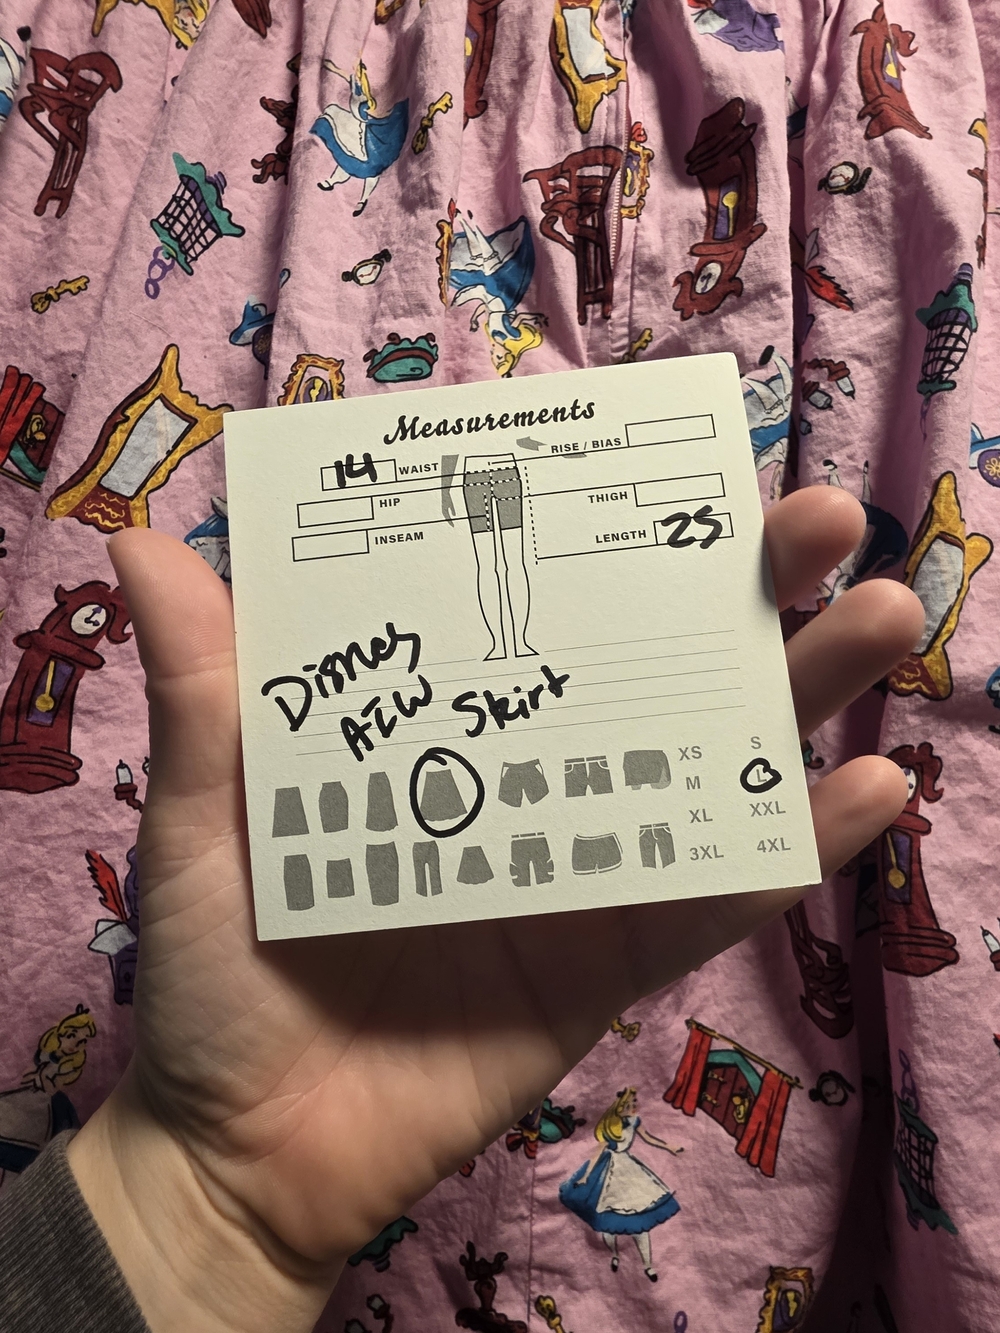 Measurements
14 WAIST
RISE / BIAS
HIP
THIGH
INSEAM
LENGTH 25
Disney
AIW Skirt
XS S
M L
XL XXL
3XL 4XL